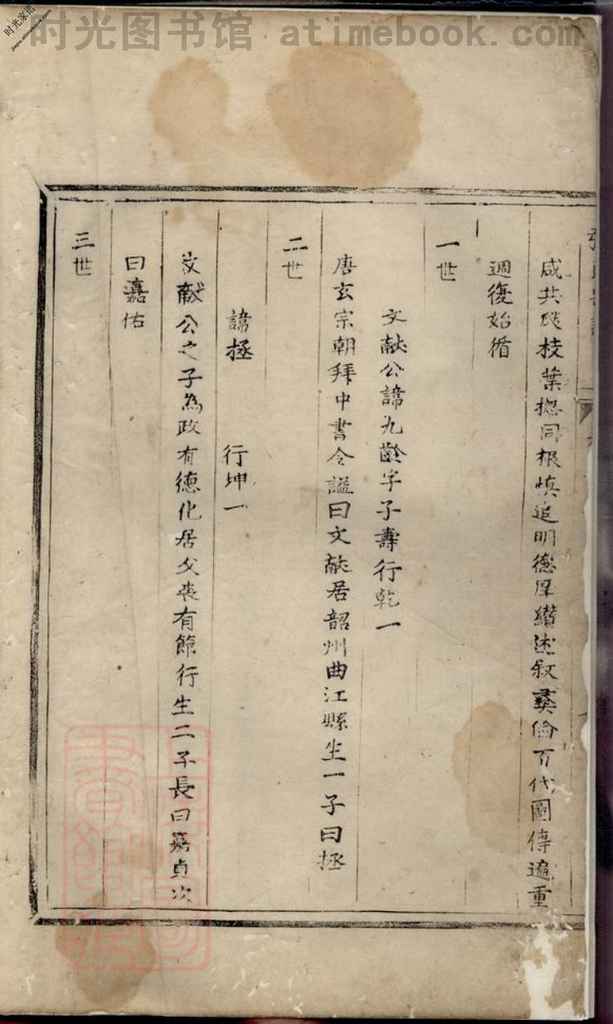 时光图书馆 atimebook.com
咸共 枝葉 同根慎追明德厚纘述敘彝倫百代圖傳 重
週復始循
一世
文献公諱九齡字子壽行乾一
唐玄宗朝拜中書令謚曰文献居韶州曲江縣生一子曰拯
二世
諱拯 行坤一
文献公之子為政有德化居父喪有節行生二子長曰嘉貞次
曰嘉佑
三世